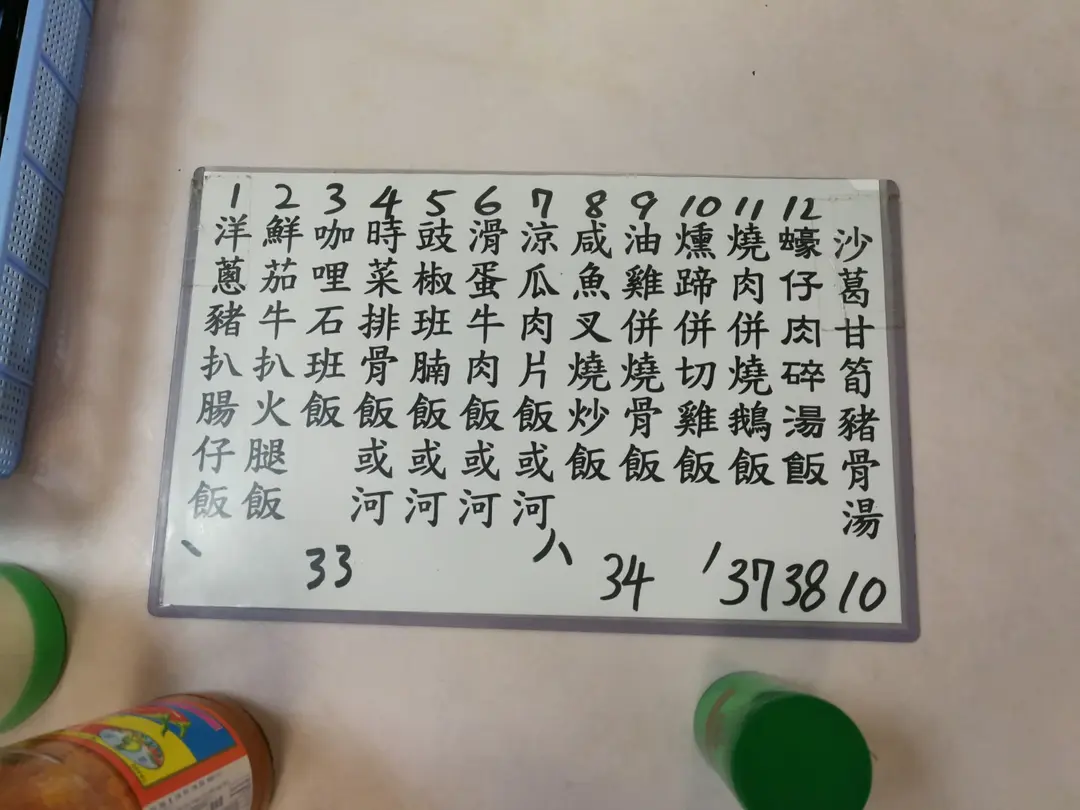 1 洋蔥豬扒腸仔飯
2 鮮茄牛扒火腿飯
3 咖哩石班飯
4 時菜排骨飯或河
5 豉椒班腩飯或河
6 滑蛋牛肉飯或河
7 涼瓜肉片飯或河
8 咸魚叉燒炒飯
9 油雞併燒骨飯
10 燻蹄併切雞飯
11 燒肉併燒鵝飯
12 蠔仔肉碎湯飯
沙葛甘筍豬骨湯
33
34
37
38
10